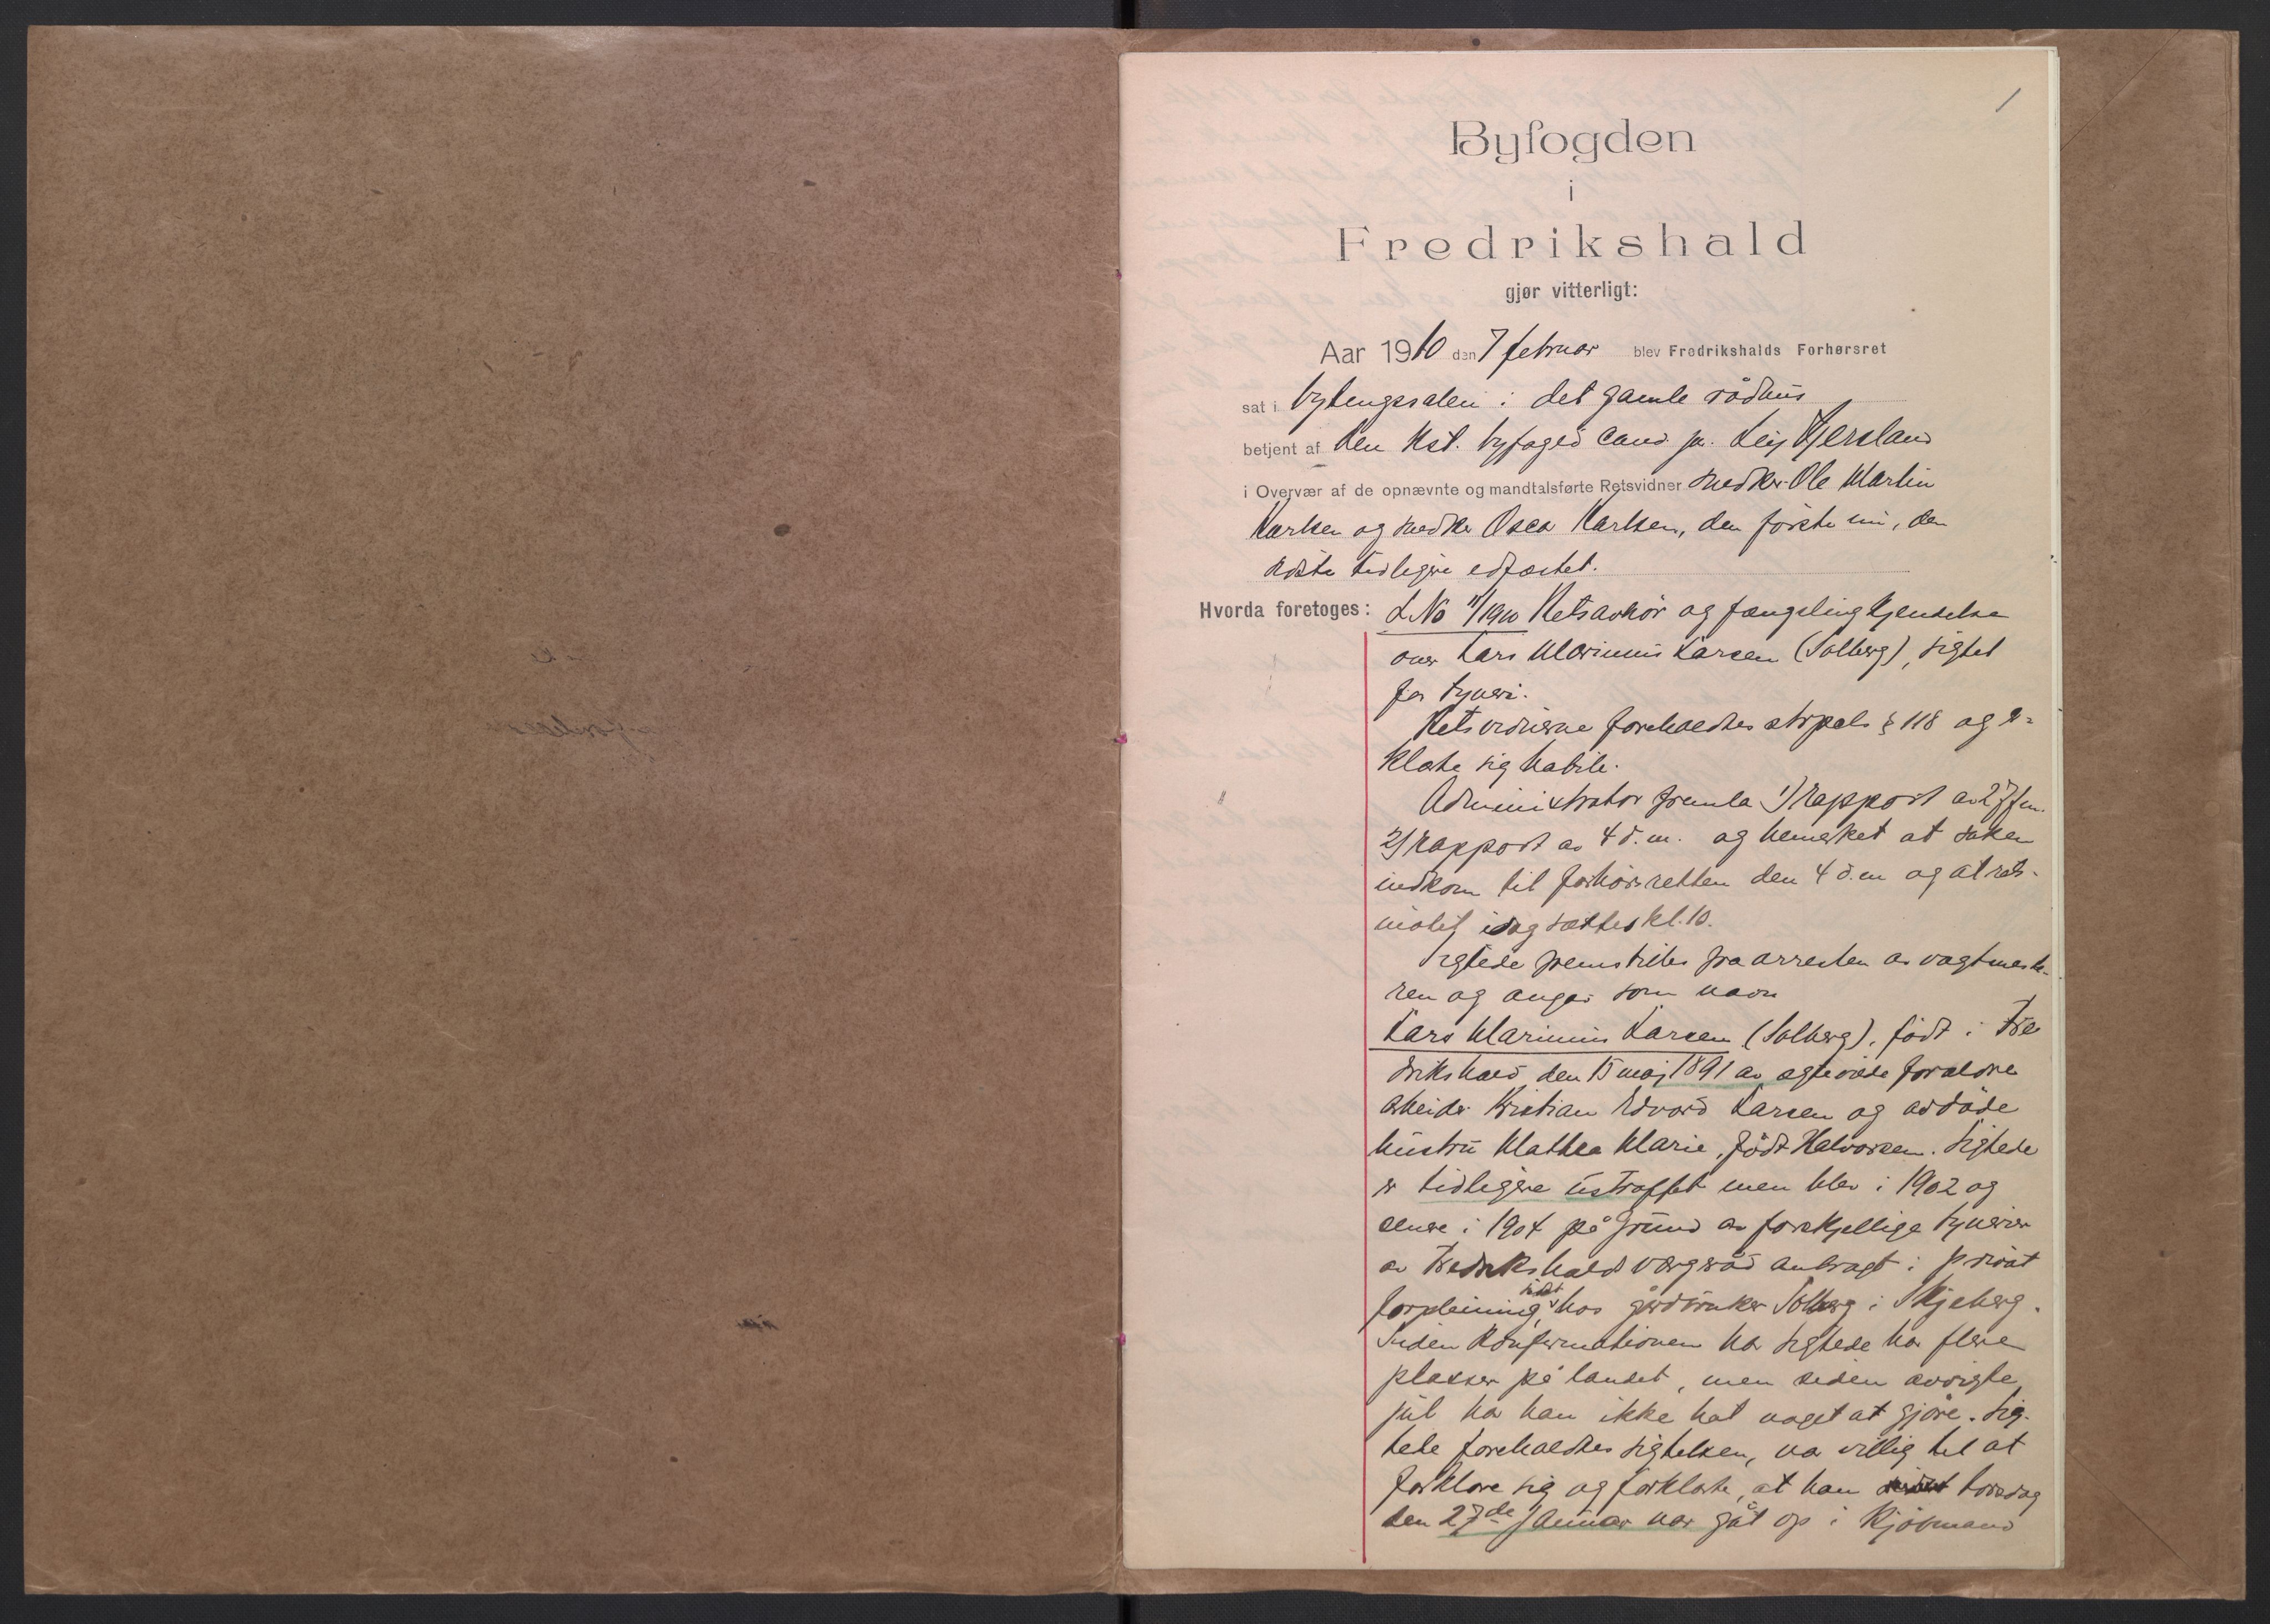 1
Byfogden
i
Fredrikshald
gjør vitterligt:
Aar 1910 den 7 februar blev Fredrikshalds Forhørsret
sat i bytingssalen i det gamle rådhus
betjent af den kst. byfoged cand jur. Leif Gjersland
i Overvær af de opnævnte og mandtalsførte Retsvidner snedker Ole Martin
Karlsen og snedker Oscar Karlsen, den første nu, den
sidste tidligere edfæstet.
Hvorda foretoges: L.No 11/1910 Retsavhør og fængslingskjendelse
over Lars Marinius Larsen (Solberg), sigtet
for tyveri.
Retsvidnerne foreholdtes strpcls § 118 og er-
klærte sig habile.
Administrator fremla 1) rapport av 27 f.m.
2) rapport av 4 d.m. og bemerket at saken
indkom til forhørsretten den 4 d.m og at rets-
møtet idag sattes kl. 10.
Sigtede fremstilles fra arresten av vagtmeste-
ren og angav som navn
Lars Marinius Larsen (Solberg), født i Fre
drikshald den 15 maj 1891 av egtevidde forældre
arbeider Kristian Edvard Larsen og avdøde
hustru Mathea Marie, født Halvorsen. Sigtede
er tidligere ustraffet men blev i 1902 og
senere i 1904 på grund av forskjellige tyverier
av Fredrikshalds vergeråd anbragt i privat
forpleining, sidst hos gårdbruker Solberg i Skjeberg.
Siden konfirmationen har sigtede hat flere
plasser på landet, men siden avvigte
jul har han ikke hat noget at gjøre. Sig-
tede foreholdtes sigtelsen, var villig til at
forklare sig og forklarte, at han torsdag
den 27de Januar var gåt op i kjøbmand